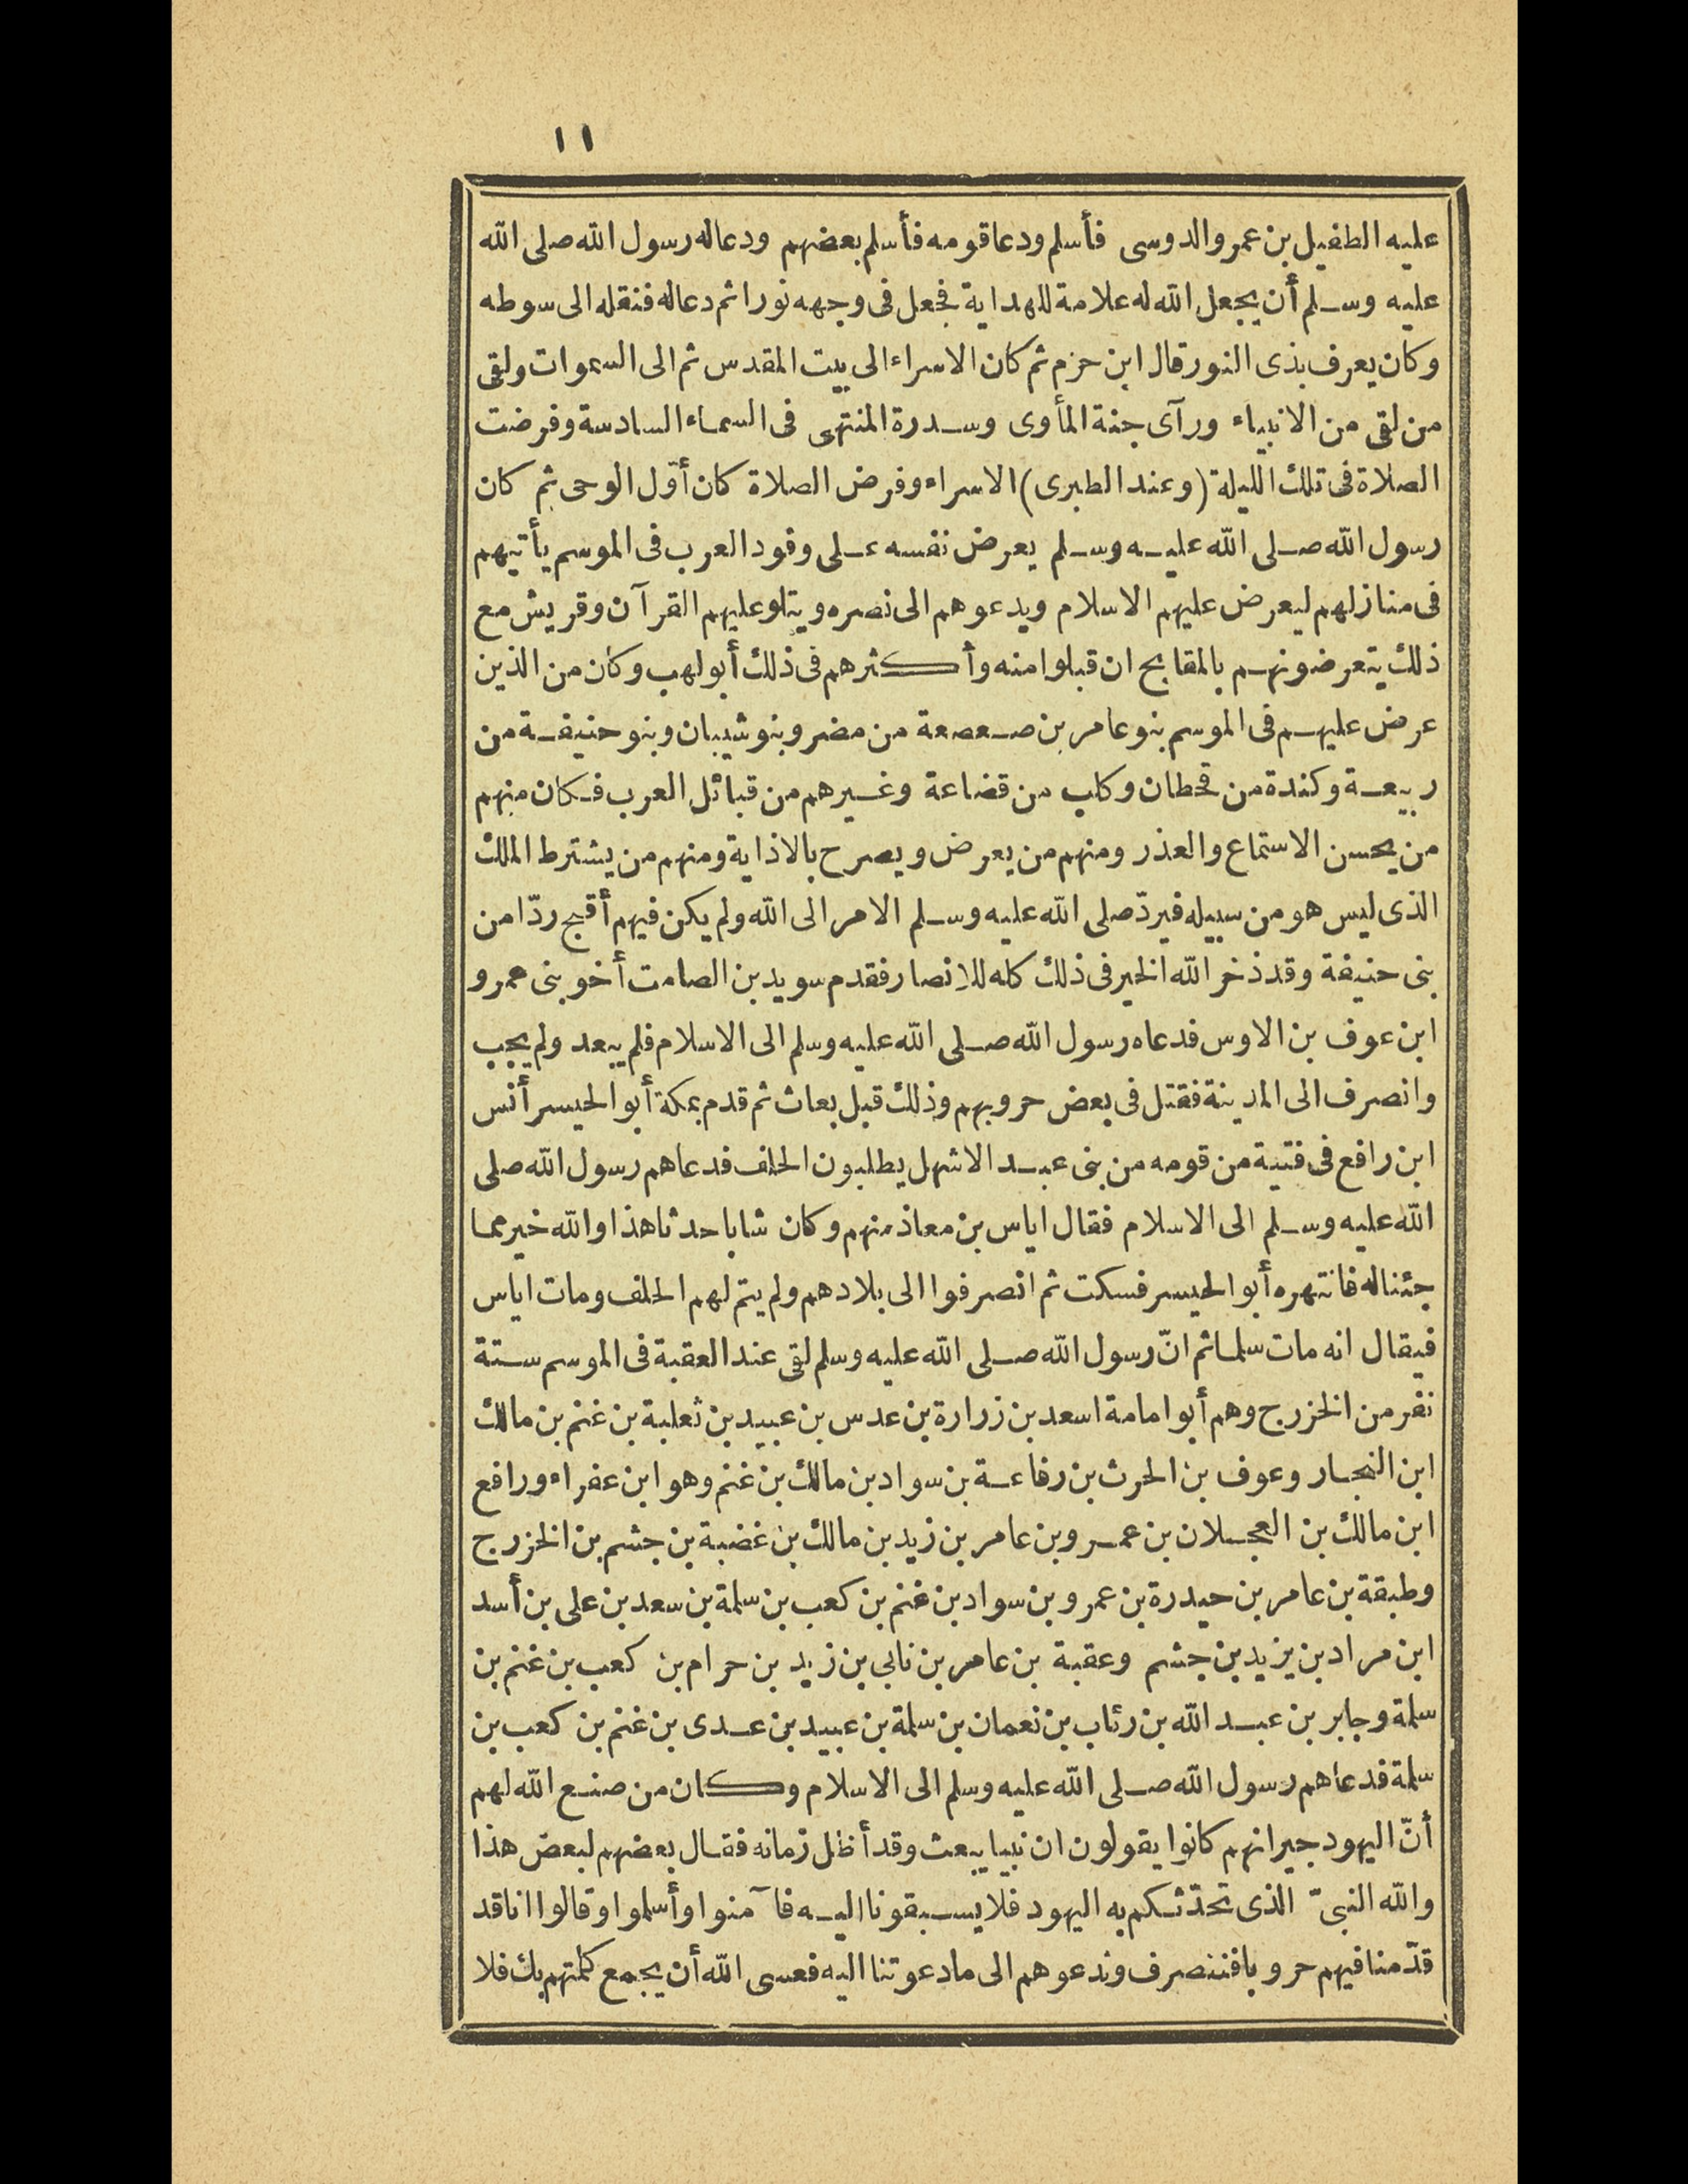 ١١
عليه الطفيل بن عمرو الدوسى فأسلم ودعا قومه فأسلم بعضهم ودعا له رسول الله صلى الله
عليه وسلم أن يجعل الله له علامة للهداية فجعل فى وجهه نورا ثم دعا له فنقله الى سوطه
وكان يعرف بذى النور قال ابن حزم ثم كان الاسراء الى بيت المقدس ثم الى السموات ولقى
من لقى من الانبياء ورآى جنة المأوى وسدرة المنتهى فى السماء السادسة وفرضت
الصلاة فى تلك الليلة (وعند الطبرى) الاسراء وفرض الصلاة كان أوّل الوحى ثم كان
رسول الله صلى الله عليه وسلم يعرض نفسه على وفود العرب فى الموسم يأتيهم
فى منازلهم ليعرض عليهم الاسلام ويدعوهم الى نصره ويتلو عليهم القرآن وقريش مع
ذلك يتعرضونهم بالمقابح ان قبلوا منه وأكثرهم فى ذلك أبو لهب وكان من الذين
عرض عليهم فى الموسم بنو عامر بن صعصعة من مضر وبنو شيبان وبنو حنيفة من
ربيعة وكندة من قحطان وكلب من قضاعة وغيرهم من قبائل العرب فكان منهم
من يحسن الاستماع والعذر ومنهم من يعرض ويصرح بالاذاية ومنهم من يشترط الملك
الذى ليس هو من سبيله فيردّ صلى الله عليه وسلم الامر الى الله ولم يكن فيهم أقبح ردّا من
بنى حنيفة وقد ذخر الله الخير فى ذلك كله للانصار فقدم سويد بن الصامت أخو بنى عمرو
ابن عوف بن الاوس فدعاه رسول الله صلى الله عليه وسلم الى الاسلام فلم يبعد ولم يجب
وانصرف الى المدينة فقتل فى بعض حروبهم وذلك قبل بعاث ثم قدم بمكة أبو الحيسر أنس
ابن رافع فى فتية من قومه من بنى عبد الاشهل يطلبون الحلف فدعاهم رسول الله صلى
الله عليه وسلم الى الاسلام فقال اياس بن معاذ منهم وكان شابا حدثا هذا والله خير مما
جئنا له فانتهره أبو الحيسر فسكت ثم انصرفوا الى بلادهم ولم يتم لهم الحلف ومات اياس
فيقال انه مات مسلما ثم انّ رسول الله صلى الله عليه وسلم لقى عند العقبة فى الموسم ستة
نفر من الخزرج وهم أبو امامة اسعد بن زرارة بن عدس بن عبيد بن ثعلبة بن غنم بن مالك
ابن النجار وعوف بن الحرث بن رفاعة بن سواد بن مالك بن غنم وهو ابن عفراء ورافع
ابن مالك بن العجلان بن عمرو بن عامر بن زيد بن مالك بن غضبة بن جشم بن الخزرج
وطبقة بن عامر بن حيدرة بن عمرو بن سواد بن غنم بن كعب بن سلمة بن سعد بن على بن أسد
ابن مراد بن يزيد بن جشم وعقبة بن عامر بن نابى بن زيد بن حرام بن كعب بن غنم بن
سلمة وجابر بن عبد الله بن رئاب بن نعمان بن سلمة بن عبيد بن عدى بن غنم بن كعب بن
سلمة فدعاهم رسول الله صلى الله عليه وسلم الى الاسلام وكان من صنع الله لهم
أنّ اليهود جيرانهم كانوا يقولون ان نبيا يبعث وقد أظل زمانه فقال بعضهم لبعض هذا
والله النبىّ الذى تحدّثكم به اليهود فلا يسبقونا اليه فآمنوا وأسلموا وقالوا انا قد
قدّمنا فيهم حروبا فننصرف وندعوهم الى ما دعوتنا اليه فعسى الله أن يجمع كلمتهم بك فلا